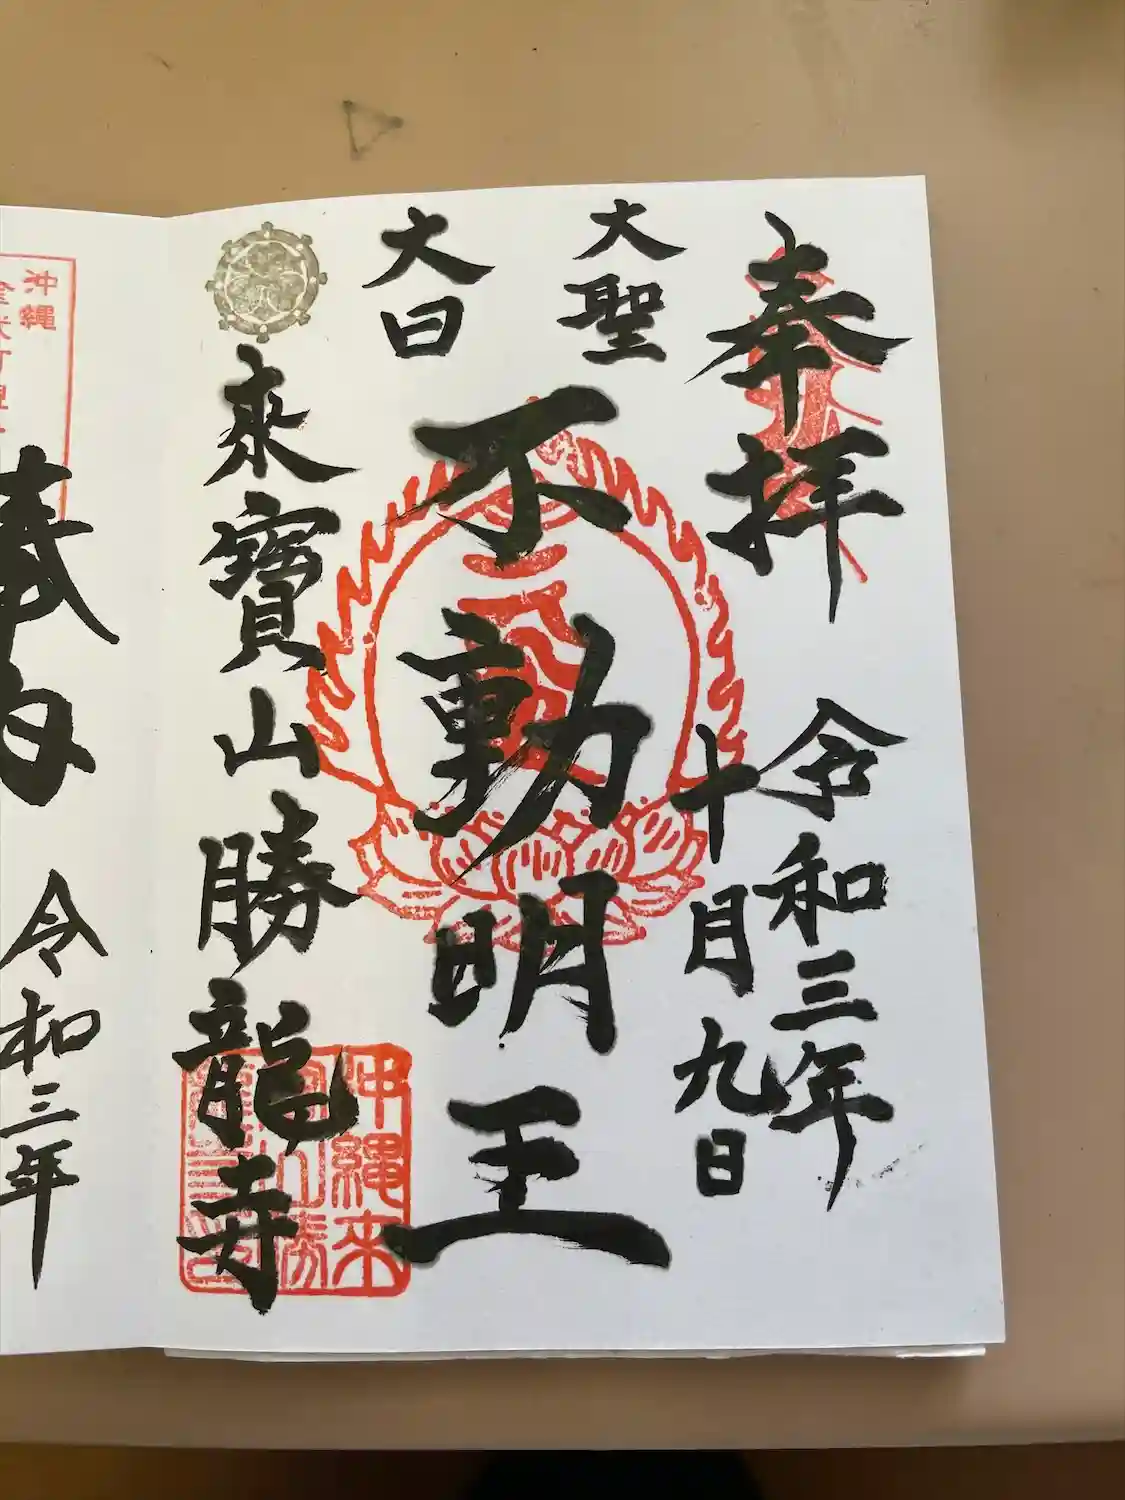 奉拝
令和三年
十月九日
大聖
不動明王
大日
來寳山勝龍寺
沖縄来
沖縄
令和三年